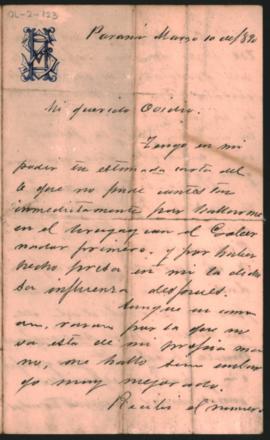 OL-2-123
Paraná Marzo 10 de/890
Mi querido Ovidio:
Tengo en mi
poder tu estimada carta del
6 que no pude contestar
inmediatamente por hallarme
en el Uruguay con el Gober
nador primero, y por haber
hecho presa en mi la dicho
sa influenza después.
Aunque en cama
aun, razon por la que no
va esta de mi propia ma
no, me hallo sin embar
go muy mejorado.
Recibí el numero